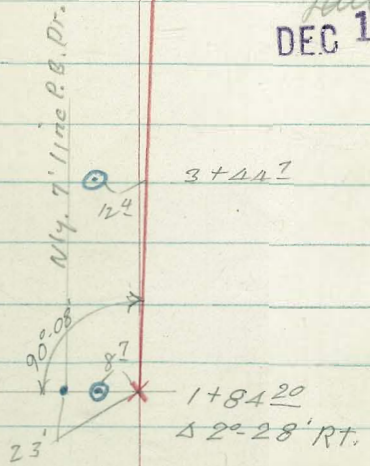 DEC 1
Nly. 7' line P.B. Dr.
3+44⁷
12⁴
90°-08'
8⁷
1+84²⁰
Δ 2°-28' Rt.
23'